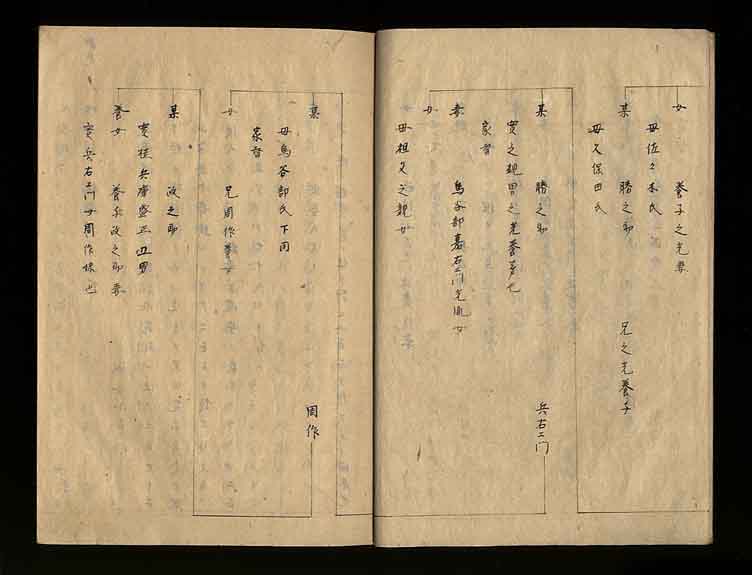 女　養子之先妻
母佐々木氏
某　勝之助　兄之先養子
母久保田氏
某　勝之助　兵右エ門
實之親男之先養子也
家督
妻　鳥谷部嘉右エ門光胤女
女
母祖父之親女
某　周作
母鳥谷部氏下同
家督
女　兄周作養女
某　政之助
實桂兵庫盛正四男
養女　養子政之助妻
實兵右エ門女周作妹也